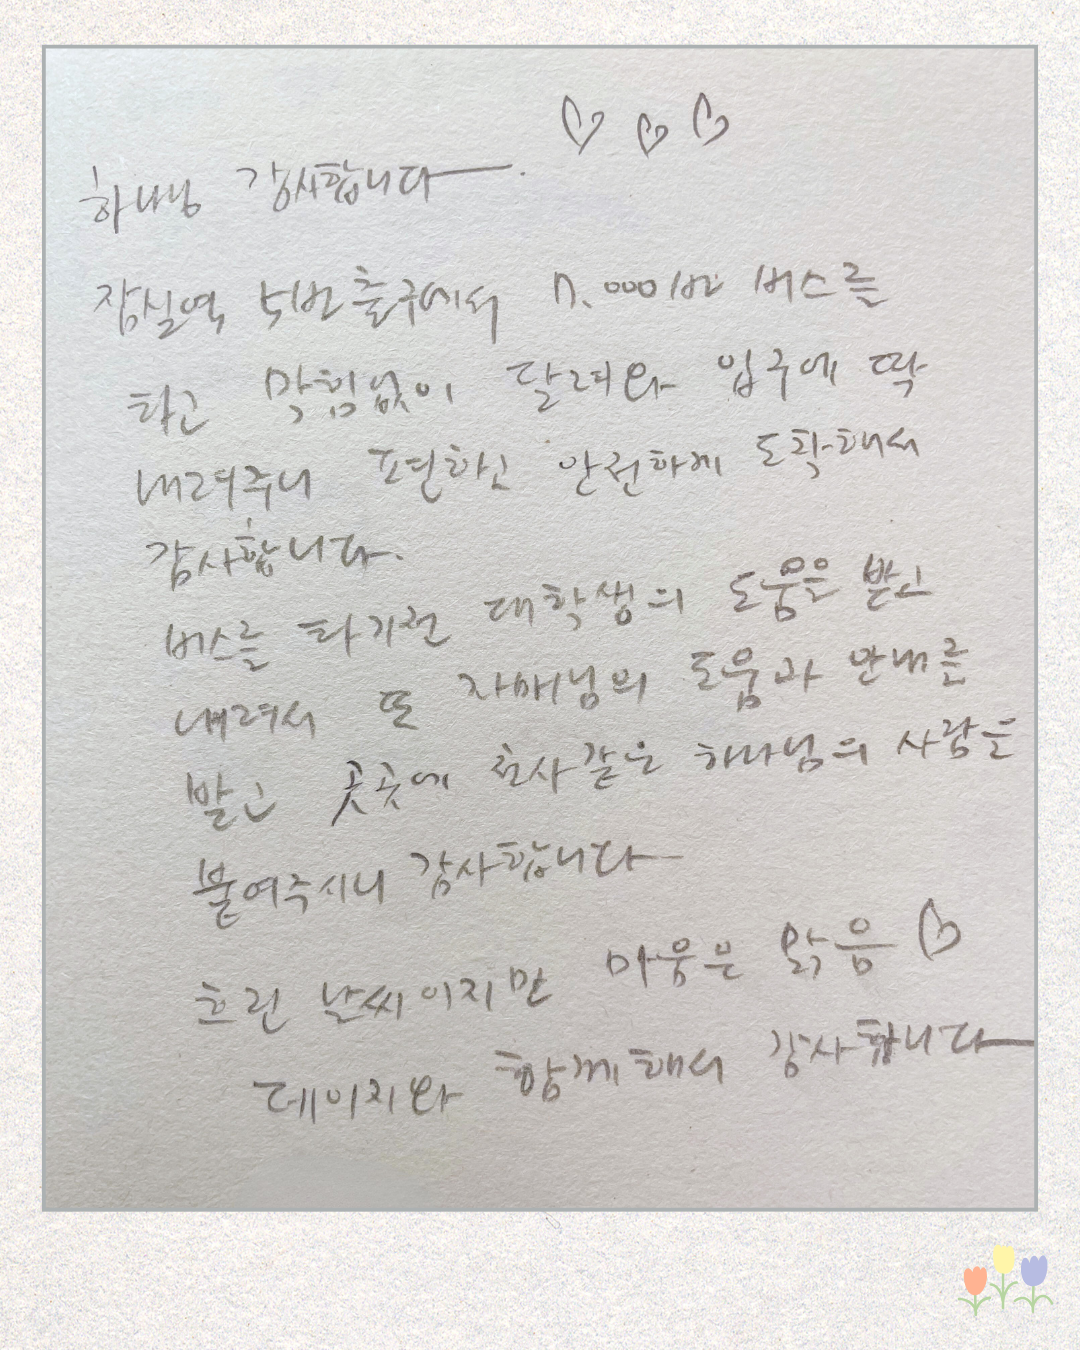 하나님 감사합니다—.
잠실역 5번출구에서 7.000번 버스를
타고 막힘없이 달려와 입구에 딱
내려주니 편하고 안전하게 도착해서
감사합니다.
버스를 타기전 대학생의 도움을 받고
내려서 또 자매님의 도움과 안내를
받고 곳곳에 천사같은 하나님의 사람들
붙여주시니 감사합니다—
흐린 날씨이지만 마음은 맑음
데이지와 함께해서 감사합니다—